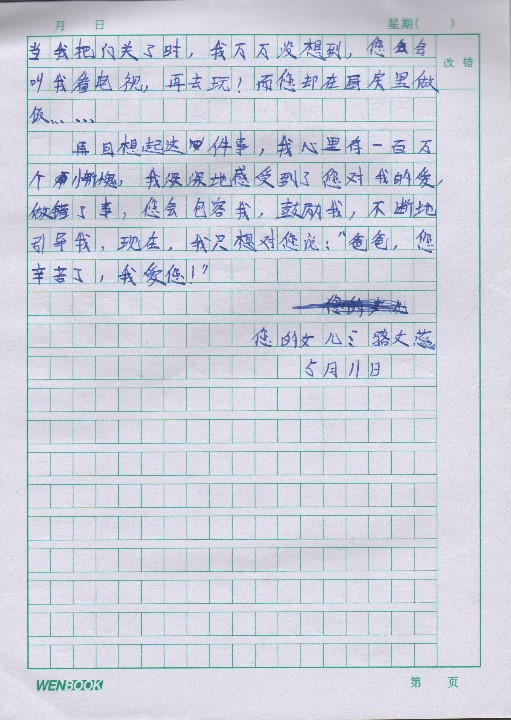 月 日 星期( )
改 错
当我把门关了时，我万万没想到，您会
叫我看电视，再去玩！而您却在厨房里做
饭……
再目想起这件事，我心里有一百万
个惭愧，我深深地感受到了您对我的爱，
做错了事，您会包容我，鼓励我，不断地
引导我，现在，我只想对您说：“爸爸，您
辛苦了，我爱您！”
您的女儿：骆文蕊
5月11日
WENBOOK 第 页